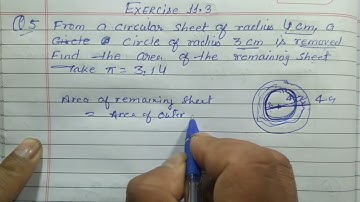 Exercise 11.3
Q5 From a circular sheet of radius 4 cm, a
circle of radius 3 cm is removed
Find the area of the remaining sheet
Take π = 3.14
Area of remaining sheet
= Area of outer
4 cm